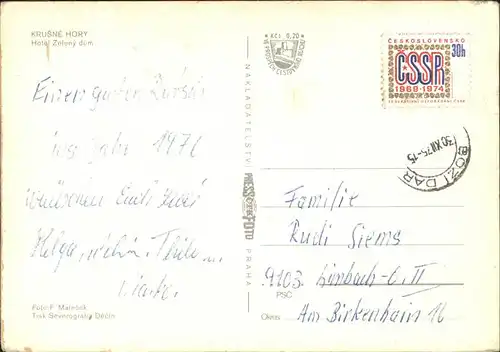 KRUŠNÉ HORY
Hotel Zelený dům
Einen guten Rutsch
ins Jahr 1976
wünschen Euch
Helga,
KČS 0,20
VE PROSPĚCH CESTOVNÍHO RUCHU
NAKLADATELSTVÍ
PRESSFOTO
PRAHA
ČESKOSLOVENSKO
30h
ČSSR
1968-1974
FEDERATIVNÍ USPOŘÁDÁNÍ ČSSR
30.XII.75-15
BOŽÍ DAR
Familie
Rudi Siems
9103 Limbach-O. II
PSČ
Am Birkenhain 16
Okres
Foto F. Maleček
Tisk Severografia Děčín